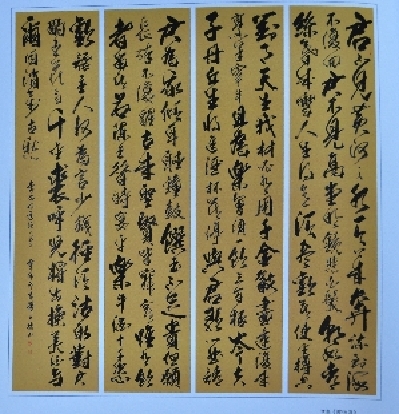 君不見黃河之水天上來奔流到海
不復回君不見高堂明鏡悲白髮朝如青
絲暮成雪人生得意須盡歡莫使金樽空
對月天生我材必有用千金散盡還復來
烹羊宰牛且為樂會須一飲三百杯岑夫
子丹丘生將進酒杯莫停與君歌一曲請
君為我傾耳聽鐘鼓饌玉不足貴但願
長醉不復醒古來聖賢皆寂寞惟有飲
者留其名陳王昔時宴平樂斗酒十千恣
歡謔主人何為言少錢徑須沽取對君
酌五花馬千金裘呼兒將出換美酒與
爾同消萬古愁